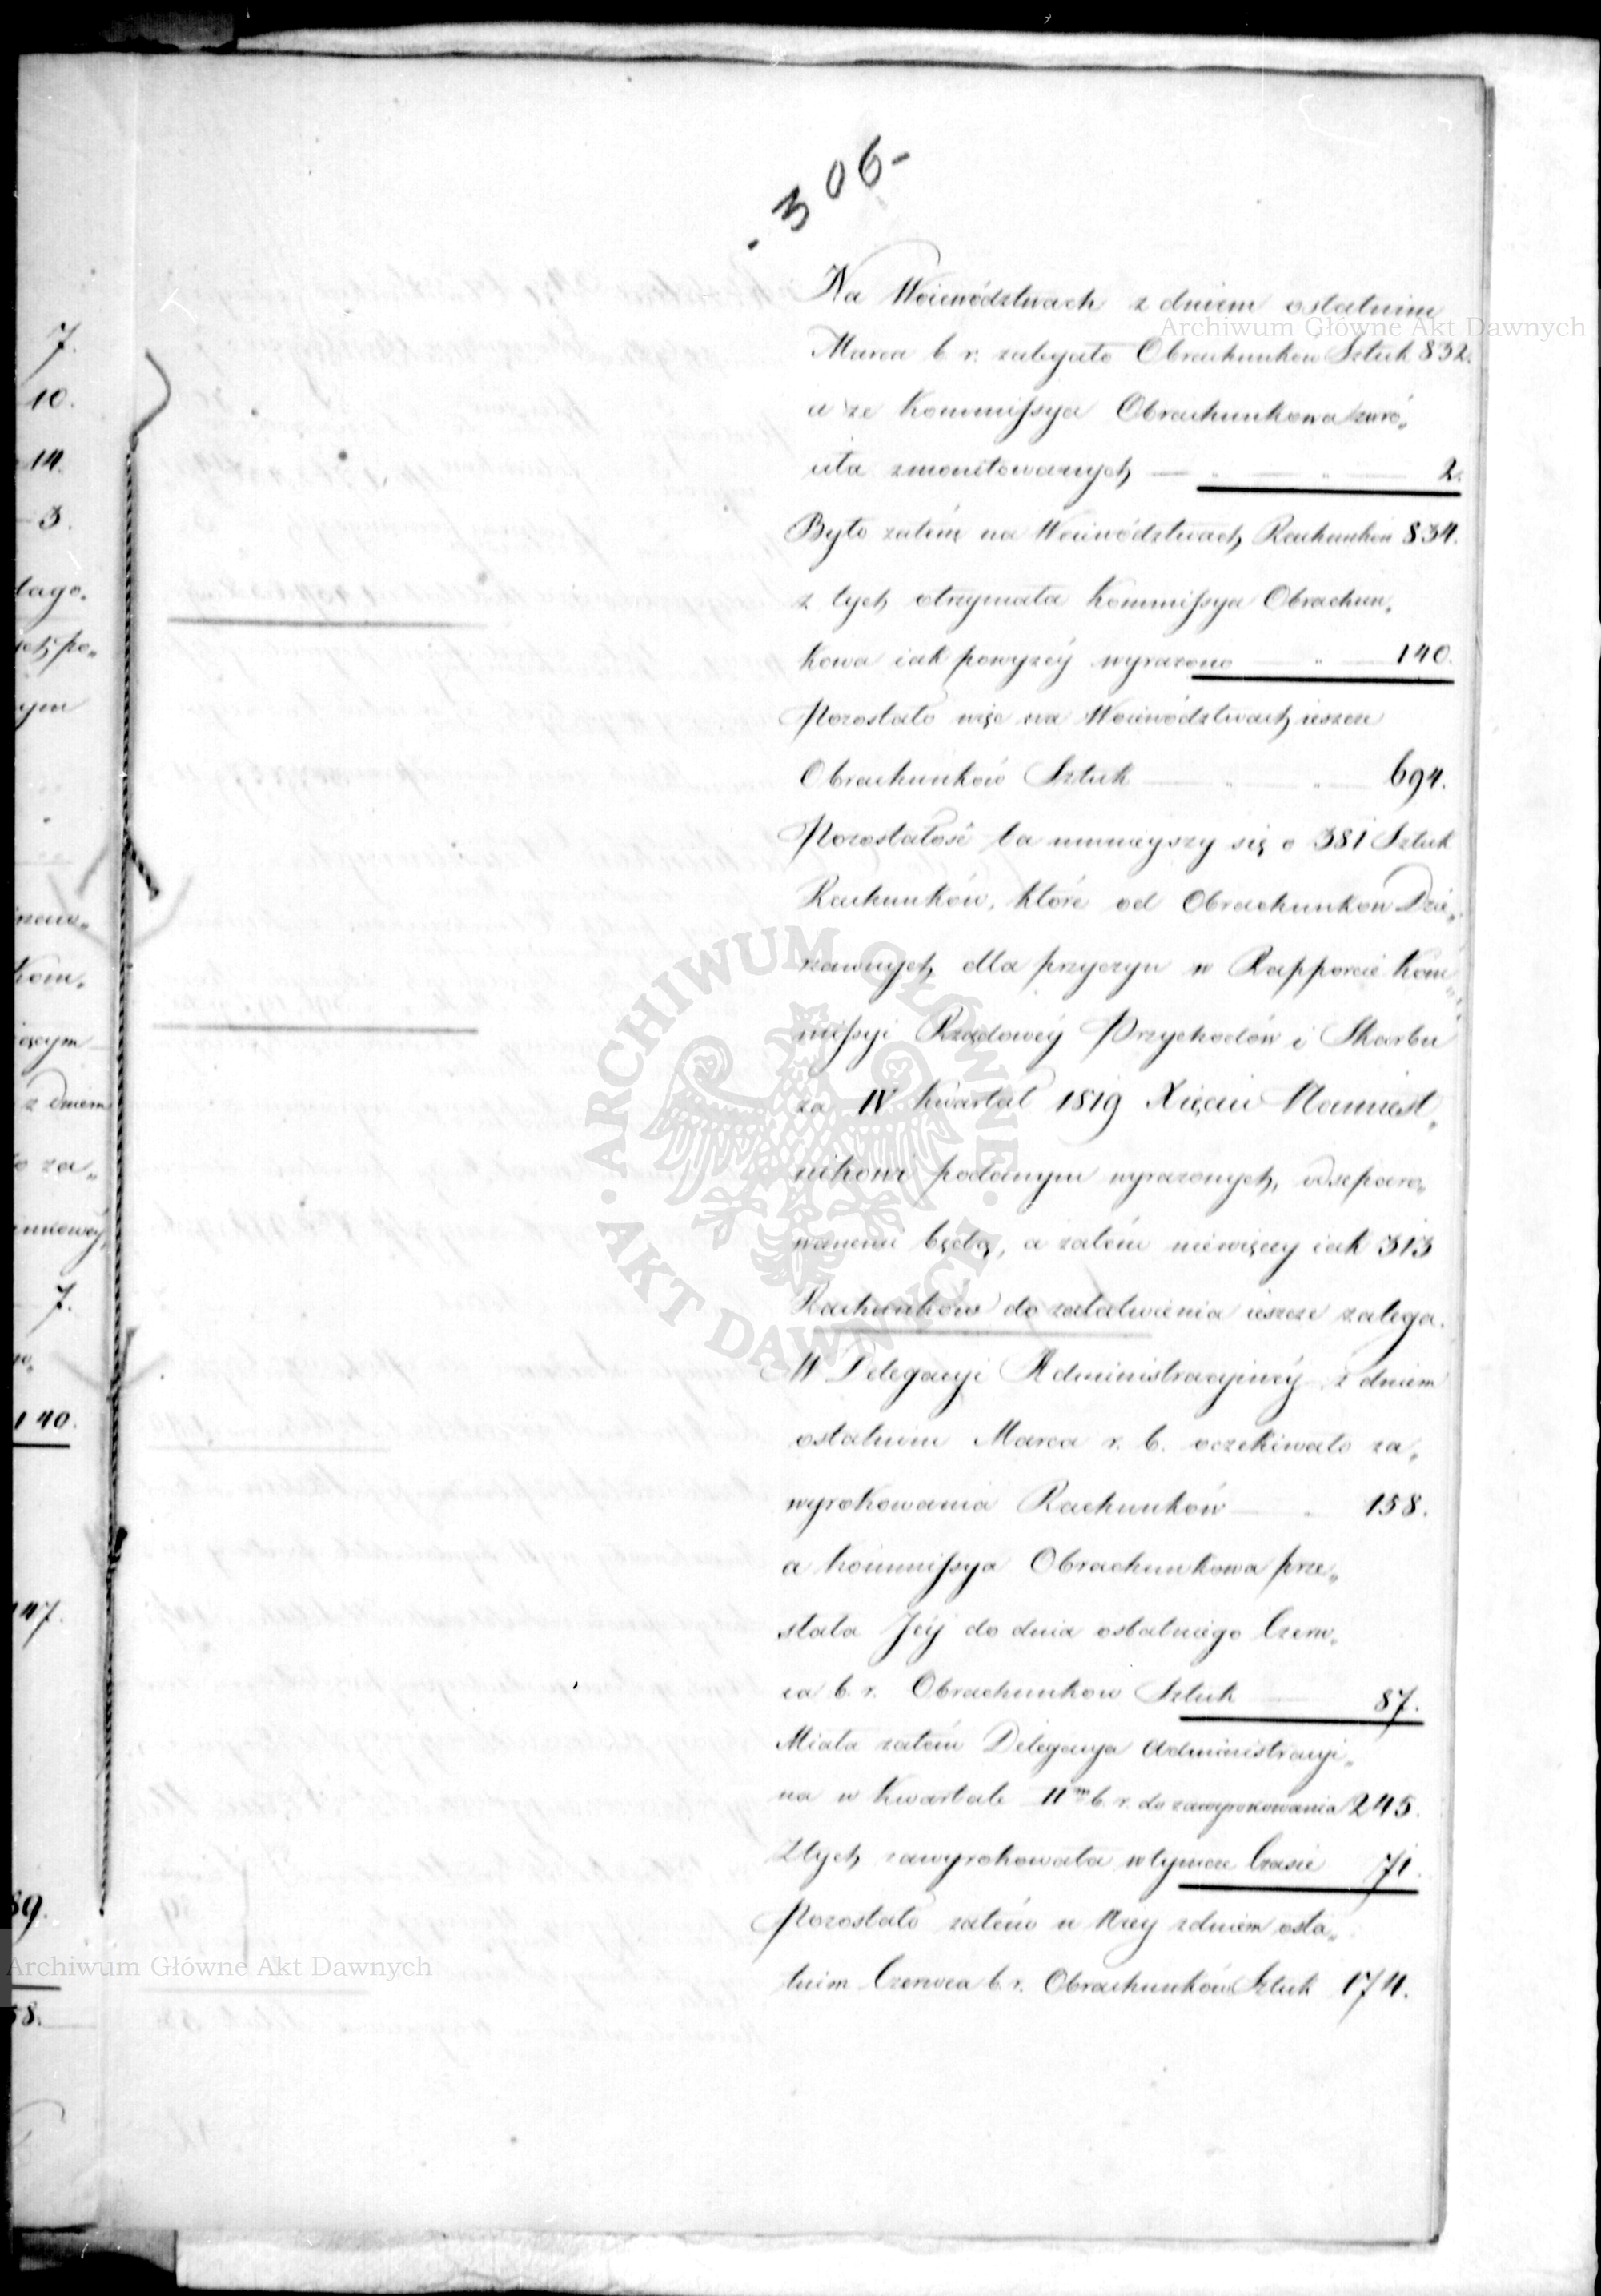 - 306 -
Na Woiewództwach z dniem ostatnim
Marca b. r. zalegało Obrachunków Sztuk 832.
a że Kommissya Obrachunkowa zwró„
ciła zmonitowanych — „ — „ — 2.
Było zatém na Woiewództwach Rachunków 834.
z tych otrzymała Kommissya Obrachun„
kowa iak powyżéy wyrażono — „ — 140.
Pozostało więc na Woiewództwach ieszcze
Obrachunków Sztuk — „ — „ — 694.
Pozostałość ta umnieyszy się o 381 Sztuk
Rachunków, które od Obrachunków Dzie„
rzawnych dla przyczyn w Rapporcie Kom„
missyi Rządowéy Przychodów i Skarbu
za IV Kwartał 1819 Xięciu Namiest„
nikowi podanym wyrażonych, odseparo„
wanemi będą, a zatém niewięcéy iak 313
Rachunków do załatwienia ieszcze zalega.
W Delegacyi Administracyinéy z dniem
ostatnim Marca r. b. oczekiwało za„
wyrokowania Rachunków — „ 158.
a Kommissya Obrachunkowa prze„
słała Jéy do dnia ostatniego Czerw„
ca b. r. Obrachunków Sztuk — 87.
Miała zatém Delegacya Administracyi„
na w Kwartale II<sup>m</sup> b. r. do zawyrokowania 245.
Z tych zawyrokowała w tymże Czasie 71.
Pozostało zatém u Niey z dniem osta„
tnim Czerwca b. r. Obrachunków Sztuk 174.
7.
10.
14.
3.
tago.
ych po„
ym
rzaw„
Kom„
z dniem
o za„
7.
140.
147.
89.
58.
Archiwum Główne Akt Dawnych
ARCHIWUM GŁÓWNE · AKT DAWNYCH ·
Archiwum Główne Akt Dawnych